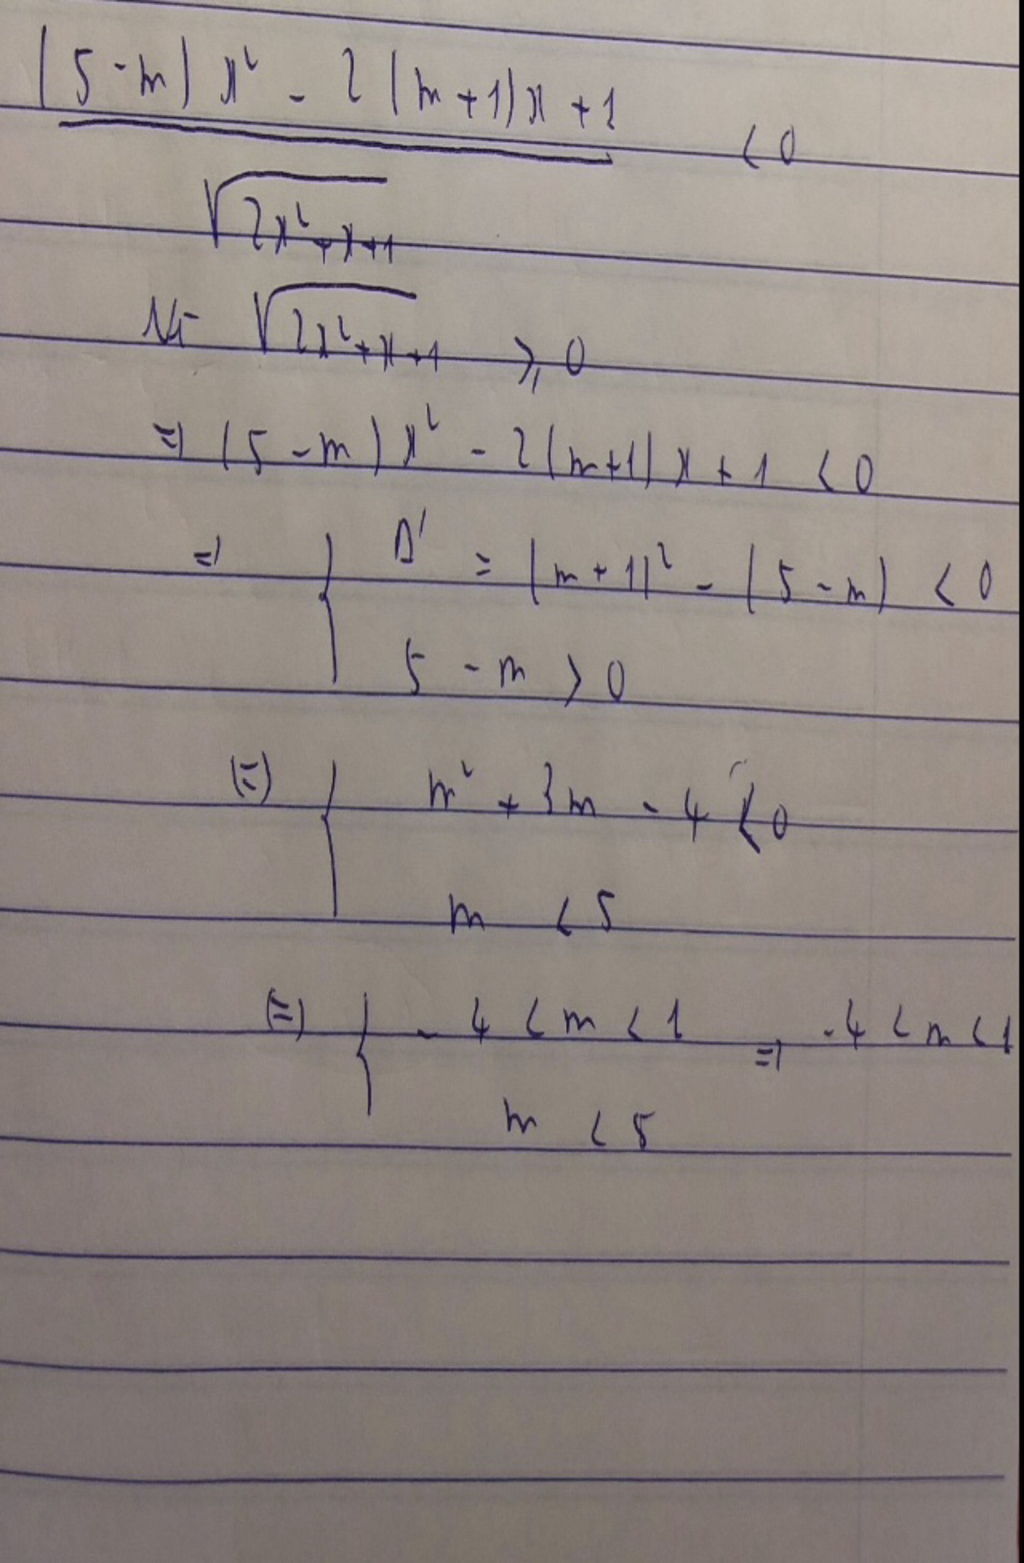 (5-m)x² - 2(m+1)x + 1 < 0
√2x²+x+1
√2x²+x+1 ⩾ 0
=> (5-m)x² - 2(m+1)x + 1 < 0
=> { Δ' = (m+1)² - (5-m) < 0
5 - m > 0
(=) { m² + 3m - 4 < 0
m < 5
(=) { -4 < m < 1 => -4 < m < 1
m < 5